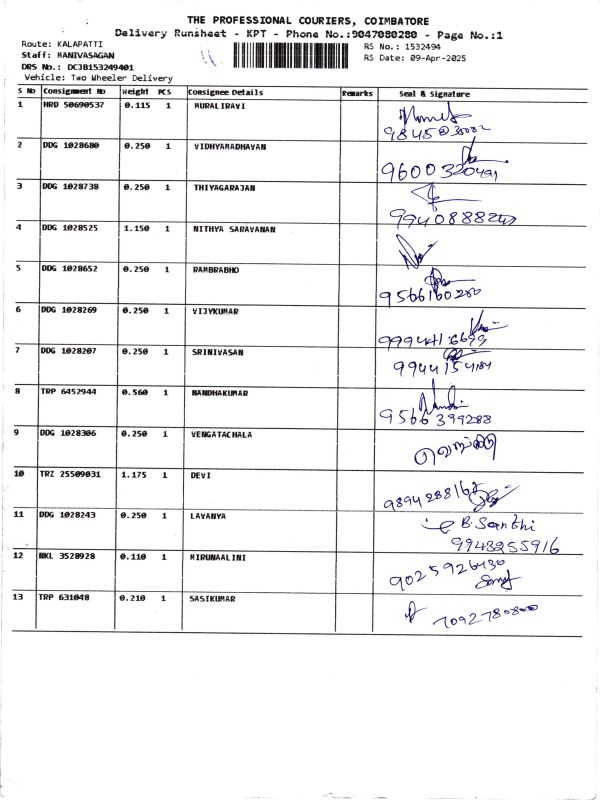 THE PROFESSIONAL COURIERS, COIMBATORE
Delivery Runsheet - KPT - Phone No.:9047080280 - Page No.:1
Route: KALAPATTI
Staff: MANIVASAGAN
DRS No.: DCJB153249401
Vehicle: Two Wheeler Delivery
RS No.: 1532494
RS Date: 09-Apr-2025
S No Consignment No Weight PCS Consignee Details Remarks Seal & Signature
1 HRD 50690537 0.115 1 MURALIRAVI
2 DDG 1028680 0.250 1 VIDHYAMADHAVAN
9600320491
3 DDG 1028738 0.250 1 THIYAGARAJAN
9940888247
4 DDG 1028525 1.150 1 NITHYA SARAVANAN
5 DDG 1028652 0.250 1 RAMBRABHO
9566160280
6 DDG 1028269 0.250 1 VIJYKUMAR
7 DDG 1028207 0.250 1 SRINIVASAN
9944154184
8 TRP 6452944 0.560 1 NANDHAKUMAR
9566399288
9 DDG 1028306 0.250 1 VENGATACHALA
10 TRZ 25509031 1.175 1 DEVI
9894288162
11 DDG 1028243 0.250 1 LAVANYA
B. Santhi
9943255916
12 NKL 3528928 0.110 1 MIRUNAALINI
9025926430
13 TRP 631048 0.210 1 SASIKUMAR
7092780800